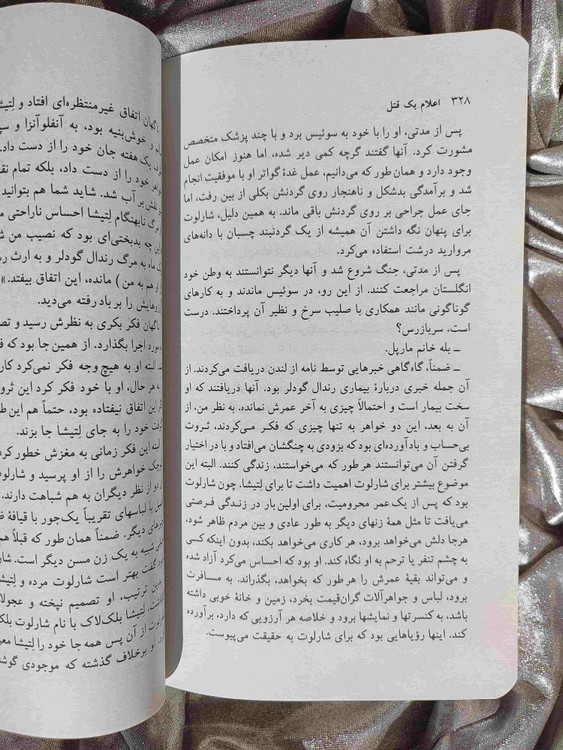 ۳۲۸ اعلام یک قتل
پس از مدتی، او را با خود به سوئیس برد و با چند پزشک متخصص
مشورت کرد. آنها گفتند گرچه کمی دیر شده، اما هنوز امکان عمل
وجود دارد و همان طور که می‌دانیم، عمل غدهٔ گواتر او با موفقیت انجام
شد و برآمدگی بدشکل و ناهنجار روی گردنش بکلی از بین رفت، اما
جای عمل جراحی بر روی گردنش باقی ماند. به همین دلیل، شارلوت
برای پنهان نگه داشتن آن همیشه از یک گردنبند چسبان با دانه‌های
مروارید درشت استفاده می‌کرد.
پس از مدتی، جنگ شروع شد و آنها دیگر نتوانستند به وطن خود
انگلستان مراجعت کنند. از این رو، در سوئیس ماندند و به کارهای
گوناگونی مانند همکاری با صلیب سرخ و نظیر آن پرداختند. درست
است، سربازرس؟
ـ بله خانم مارپل.
ـ ضمناً، گاه‌گاهی خبرهایی توسط نامه از لندن دریافت می‌کردند. از
آن جمله خبری دربارهٔ بیماری رندال گودلر بود. آنها دریافتند که او
سخت بیمار است و احتمالاً چیزی به آخر عمرش نمانده. به نظر من، از
آن به بعد، این دو خواهر به تنها چیزی که فکر می‌کردند، ثروت
بی‌حساب و بادآورده‌ای بود که بزودی به چنگشان می‌افتاد و با در اختیار
گرفتن آن می‌توانستند هر طور که می‌خواستند، زندگی کنند. البته این
موضوع بیشتر برای شارلوت اهمیت داشت تا برای لتیشا. چون شارلوت
بود که پس از یک عمر محرومیت، برای اولین بار در زندگی فرصتی
می‌یافت تا مثل همهٔ زنهای دیگر به طور عادی و بین مردم ظاهر شود،
هرجا دلش می‌خواهد برود، هر کاری می‌خواهد بکند، بدون اینکه کسی
به چشم تنفر یا ترحم به او نگاه کند. او که احساس می‌کرد آزاد شده
و می‌تواند بقیهٔ عمرش را هرطور که بخواهد، بگذراند. به مسافرت
برود، لباس و جواهرآلات گران‌قیمت بخرد، زمین و خانهٔ خوبی داشته
باشد، به کنسرتها و نمایشها برود و خلاصه هر آرزویی که دارد، برآورده
کند. اینها رؤیاهایی بود که برای شارلوت به حقیقت می‌پیوست.
ناگهان اتفاق غیرمنتظره‌ای افتاد و لتیشا
و خوش‌بنیه بود، به آنفلوآنزا و
یک هفته جان خود را از دست داد.
خود را از دست داد، بلکه تمام
بر آب شد. شاید شما هم بتوانید
مرگ نابهنگام لتیشا احساس ناراحتی
چه بدبختی‌ای بود که نصیب من
ماه به مرگ رندال گودلر و به ارث
هم به من) مانده، این اتفاق بیفتد.»
رؤیاهایش را بر باد رفته می‌دید.
ناگهان فکر بکری به نظرش رسید و
مورد اجرا بگذارد. از همین جا بود که
البته او به هیچ وجه فکر نمی‌کرد
هر حال، او با خود فکر کرد این
این اتفاق نیفتاده بود، حتماً هم این
خود را به جای لتیشا جا بزند.
البته این فکر زمانی به مغزش خطور
خواهرش را از او پرسید و
از نظر دیگران به هم شباهت دارند.
با لباسهای تقریباً یک‌جور با قیافهٔ
دیگر. ضمناً همان طور که قبلاً هم
شبیه به یک زن مسن دیگر است.
گفت بهتر است شارلوت مرده و
ترتیب، او تصمیم نپخته و عجولانه
لتیشا بلک‌لاک با نام شارلوت
از آن پس همه جا خود را لتیشا
برخلاف گذشته که موجودی